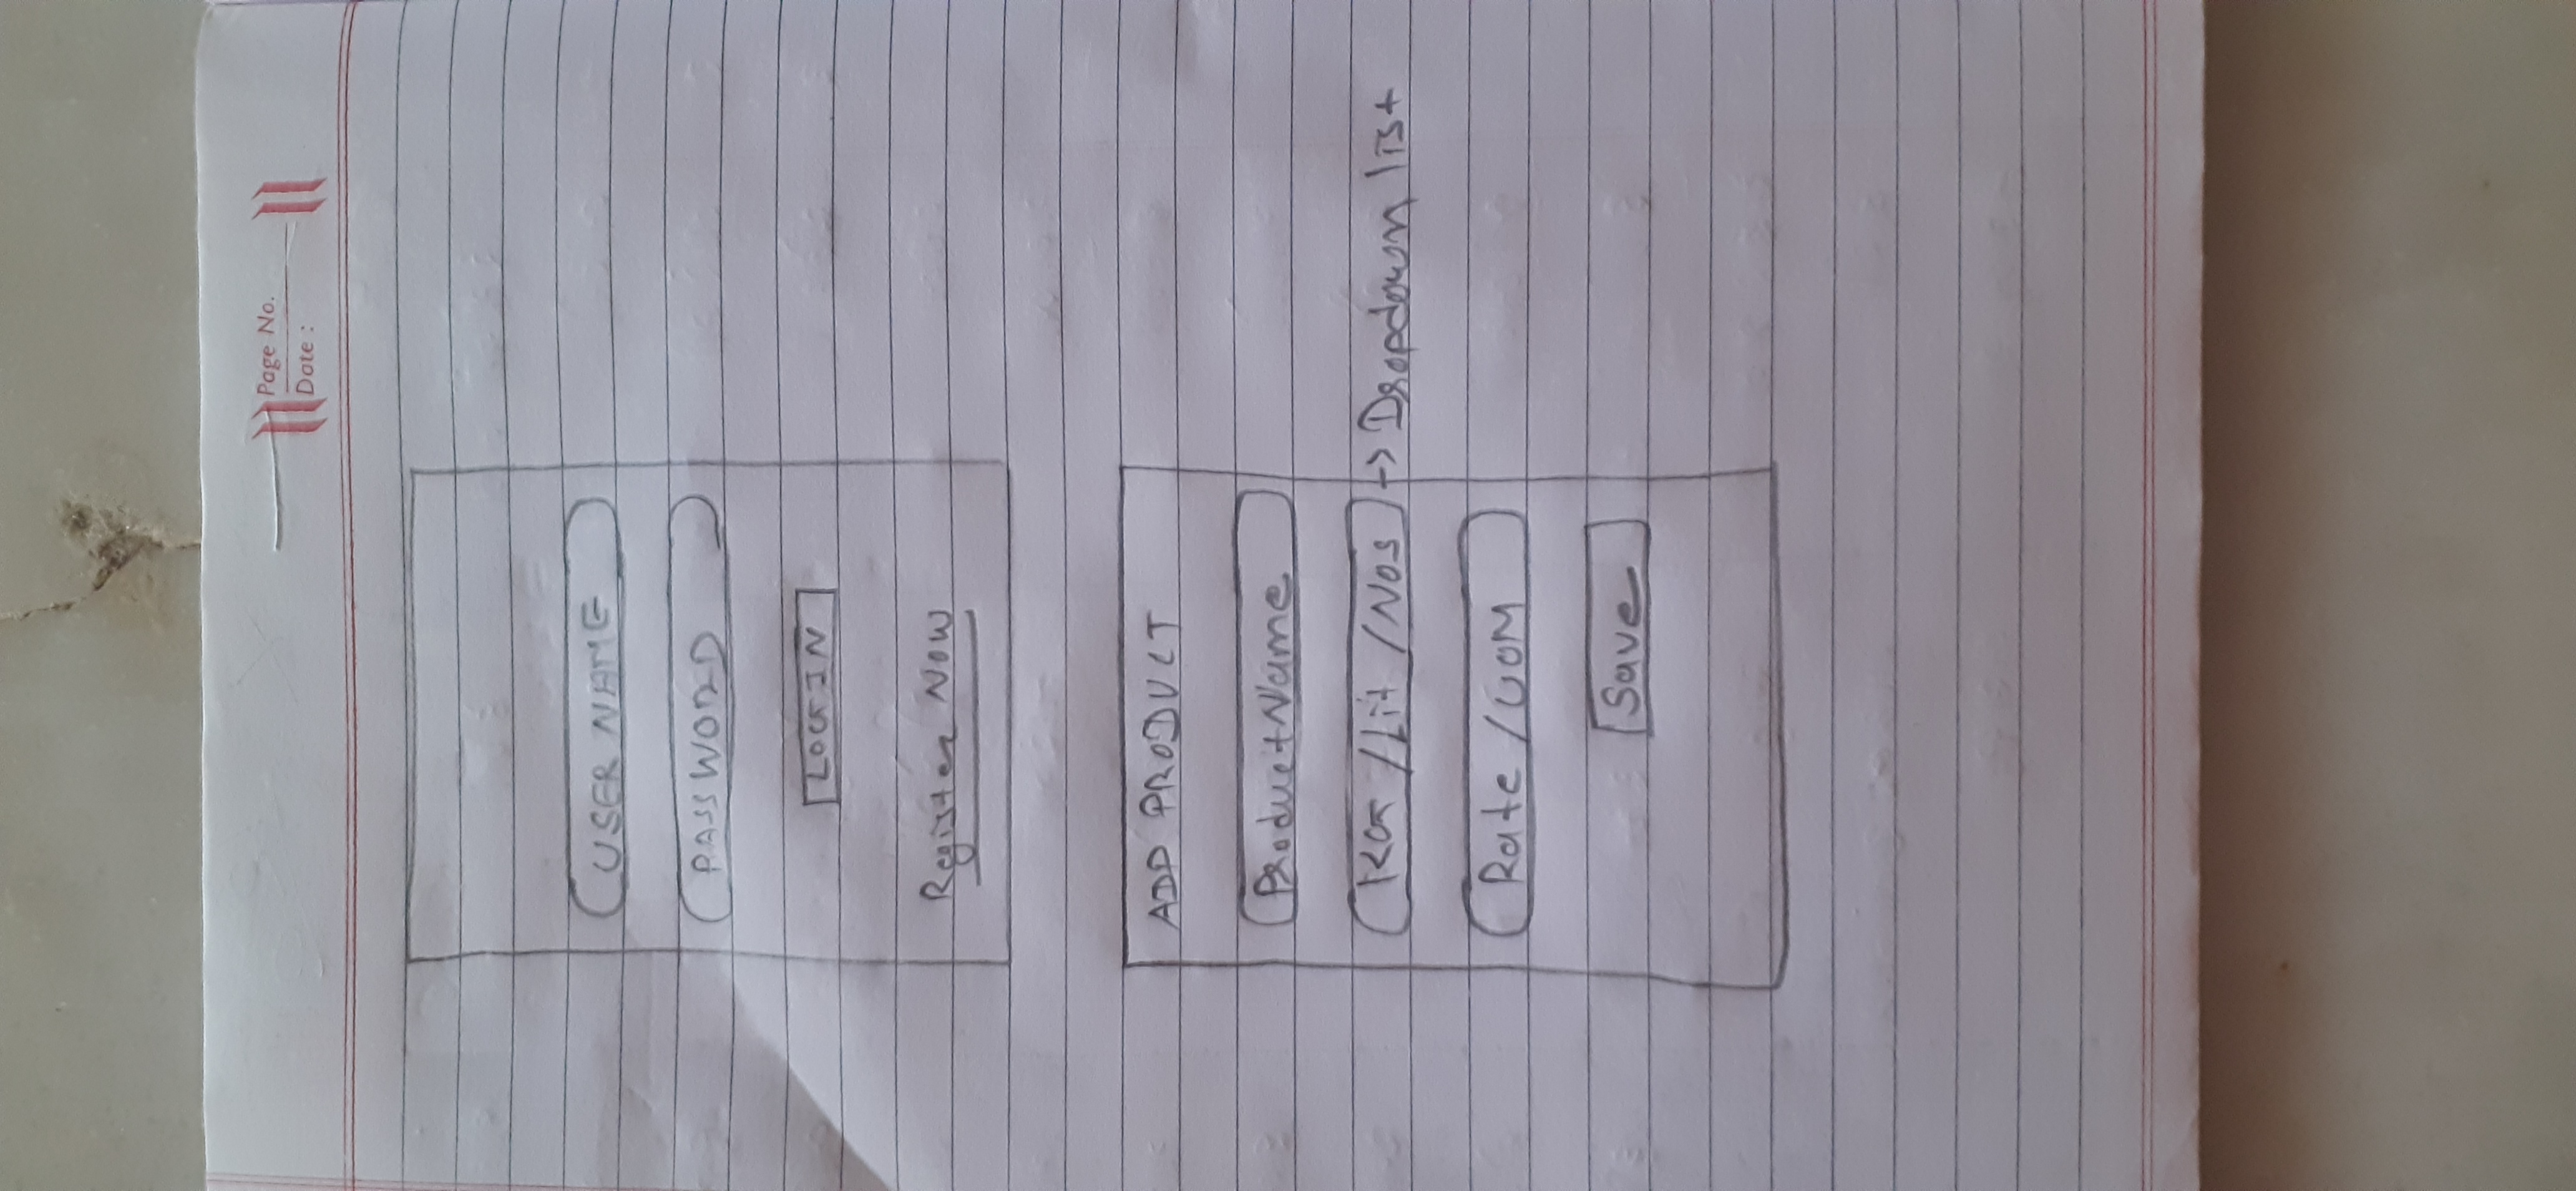 Page No.
Date :
USER NAME
PASSWORD
LOGIN
Register Now
ADD PRODUCT
Product Name
KG / Lit / Nos → Dropdown list
Rate / UOM
Save